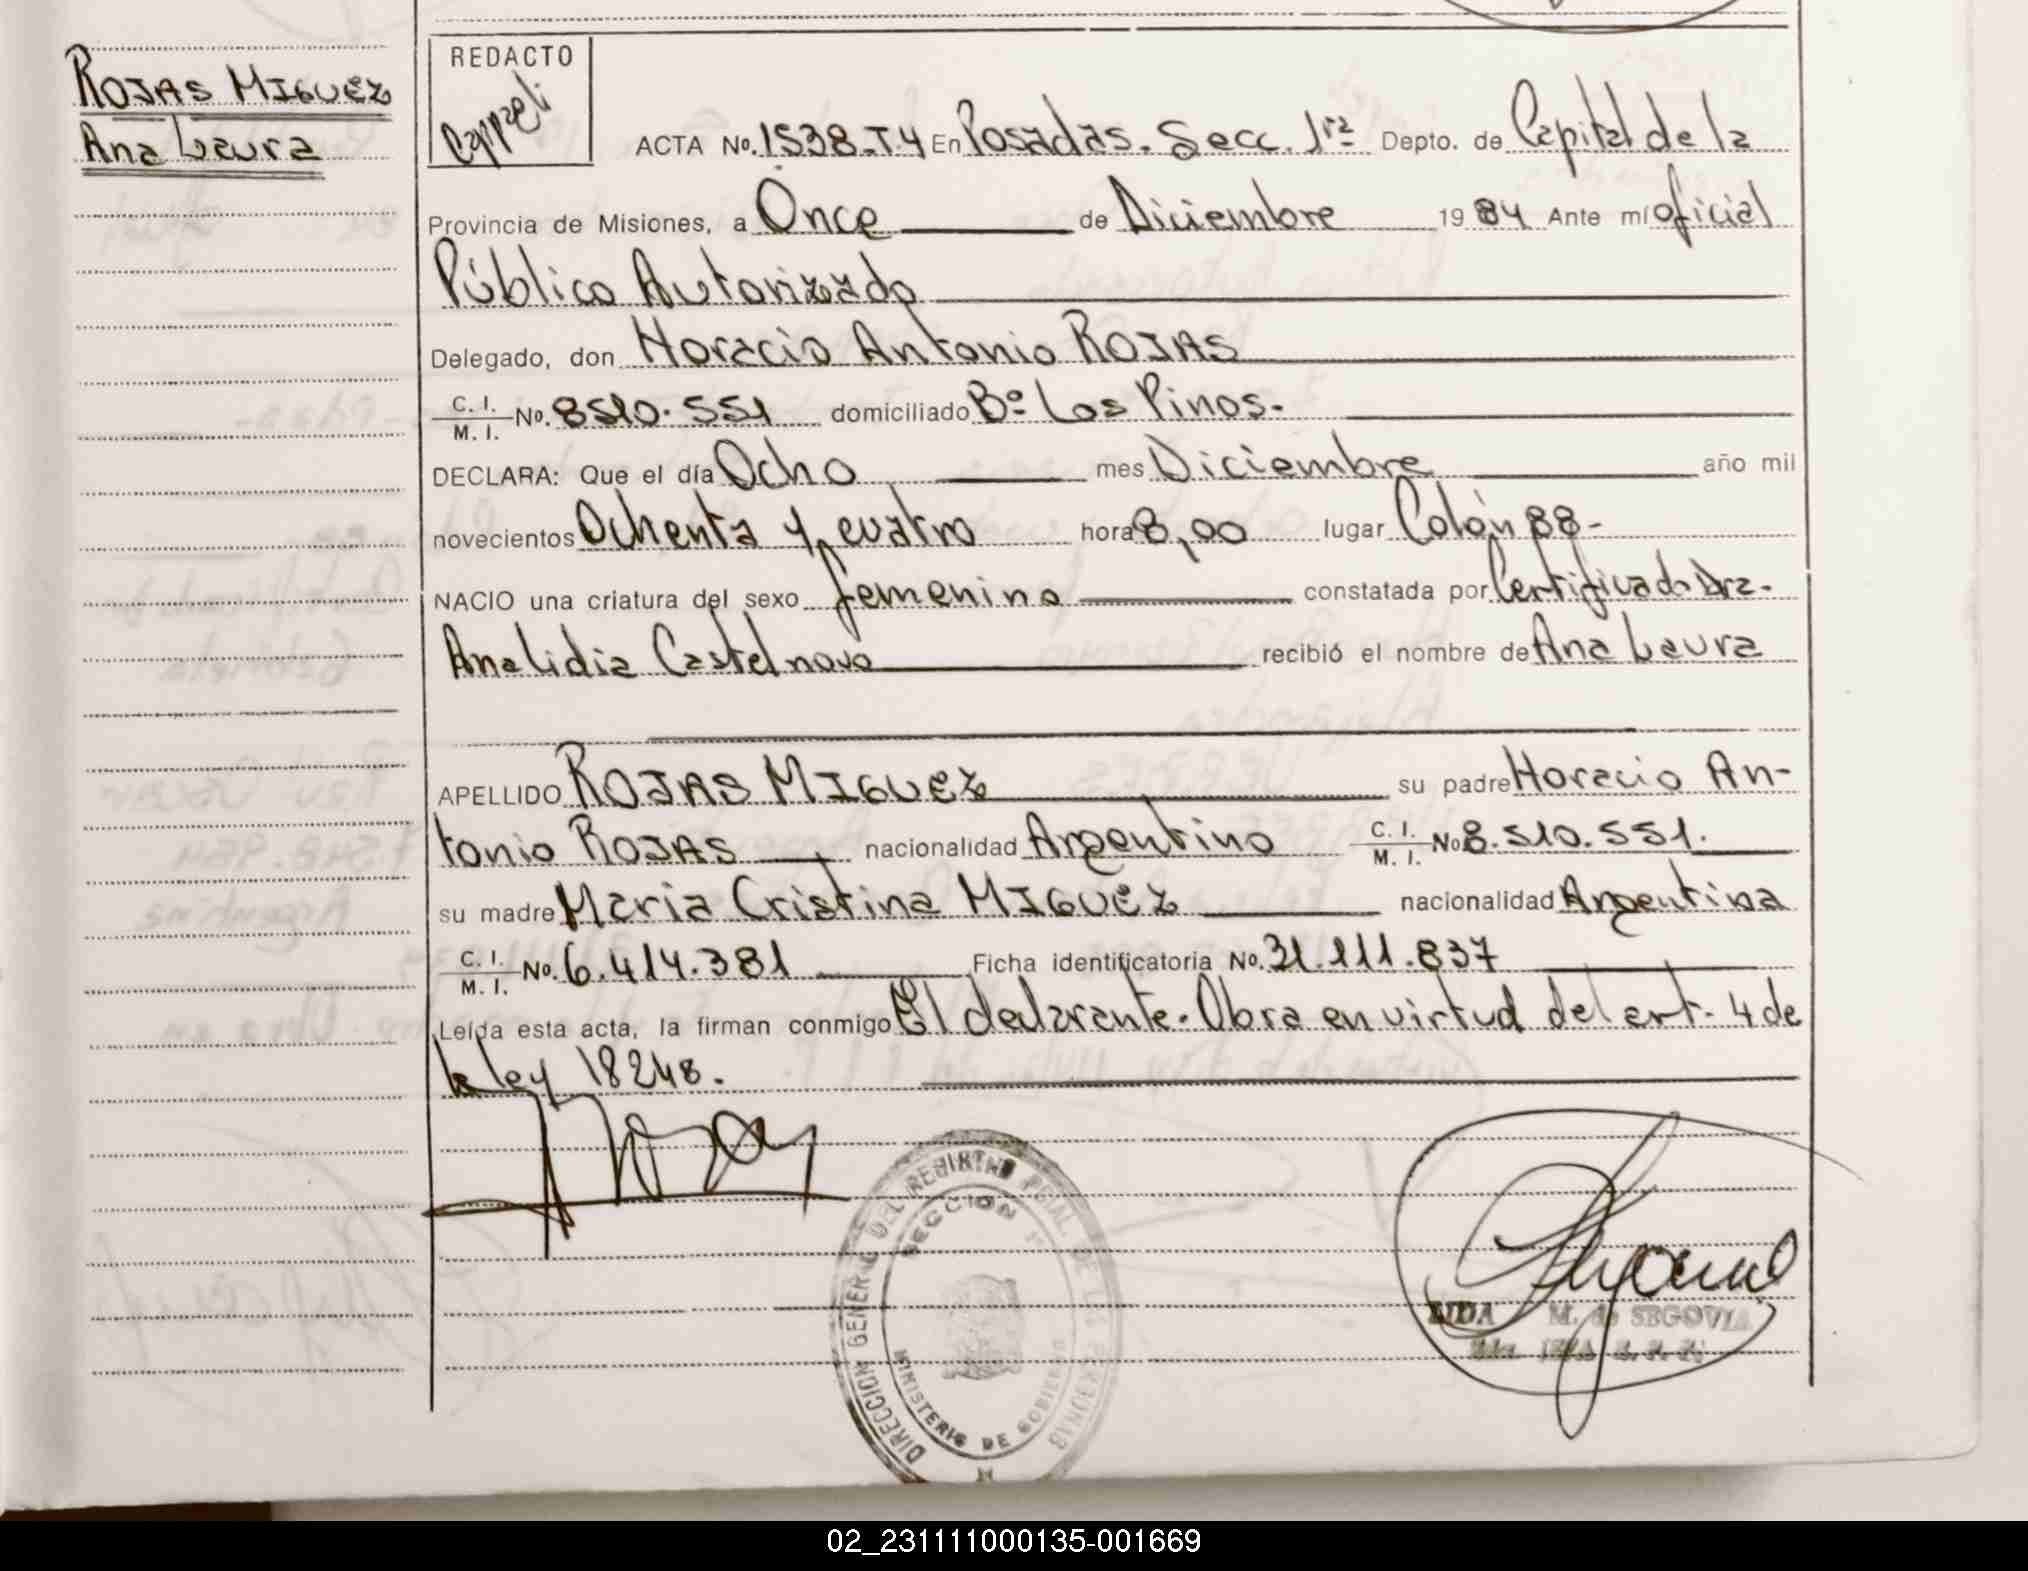 ROJAS MIGUEZ
Ana Laura
REDACTO
Cappeli
ACTA No. 1538-T.4 En Posadas. Secc. 1ra Depto. de Capital de la
Provincia de Misiones, a Once de Diciembre 1984 Ante mí oficial
Público Autorizado
Delegado, don Horacio Antonio ROJAS
C. I.
M. I. No. 8510.551 domiciliado Bo Los Pinos.
DECLARA: Que el día Ocho mes Diciembre año mil
novecientos Ochenta y cuatro hora 8,00 lugar Colón 88-
NACIO una criatura del sexo femenino constatada por Certificado Dra.
Ana Lidia Castelnovo recibió el nombre de Ana Laura
APELLIDO ROJAS MIGUEZ su padre Horacio An-
tonio ROJAS nacionalidad Argentino C. I. M. I. No 8.510.551.
su madre Maria Cristina MIGUEZ nacionalidad Argentina
C. I.
M. I. No. 6.414.381 Ficha identificatoria No. 31.111.837
Leída esta acta, la firman conmigo El declarante. Obra en virtud del art. 4 de
la ley 18248.
DIRECCION GENERAL DEL REGISTRO DE LAS PERSONAS
SECCION 1ª
MINISTERIO DE GOBIERNO
LIDA M. de SEGOVIA
02_231111000135-001669